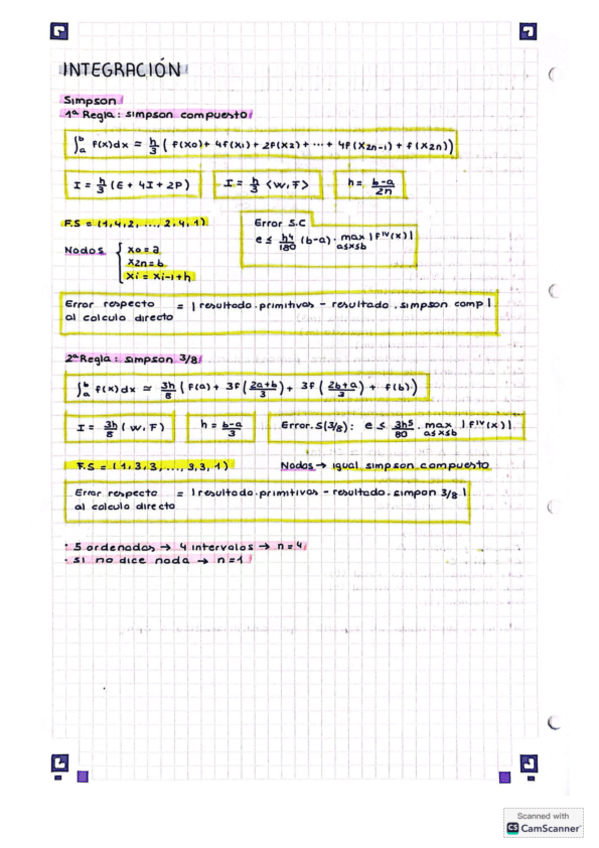 INTEGRACIÓN
Simpson
1ª Regla: simpson compuesto
∫ₐᵇ f(x)dx ≃ h/3 ( f(x0) + 4f(x1) + 2f(x2) + ··· + 4f(x2n-1) + f(x2n))
I = h/3 (E + 4I + 2P)
I = h/3 <W,F>
h = b-a/2n
F.S = (1,4,2, ..., 2,4,1)
Error S.C
e ≤ h⁴/180 (b-a) · max a≤x≤b |f^IV(x)|
Nodos { x0 = a
x2n = b
xi = xi-1 + h
Error respecto al calculo directo = | resultado.primitivas - resultado.simpson comp |
2ª Regla: simpson 3/8
∫ₐᵇ f(x)dx ≃ 3h/8 ( f(a) + 3f (2a+b/3) + 3f (2b+a/3) + f(b))
I = 3h/8 (W,F)
h = b-a/3
Error.S(3/8): e ≤ 3h⁵/80 · max a≤x≤b |f^IV(x)|
F.S = (1,3,3, ..., 3,3,1)
Nodos → igual simpson compuesto
Error respecto al calculo directo = | resultado.primitivas - resultado.simpon 3/8 |
· 5 ordenadas → 4 intervalos → n=4
· si no dice nada → n=1
Scanned with
CS CamScanner